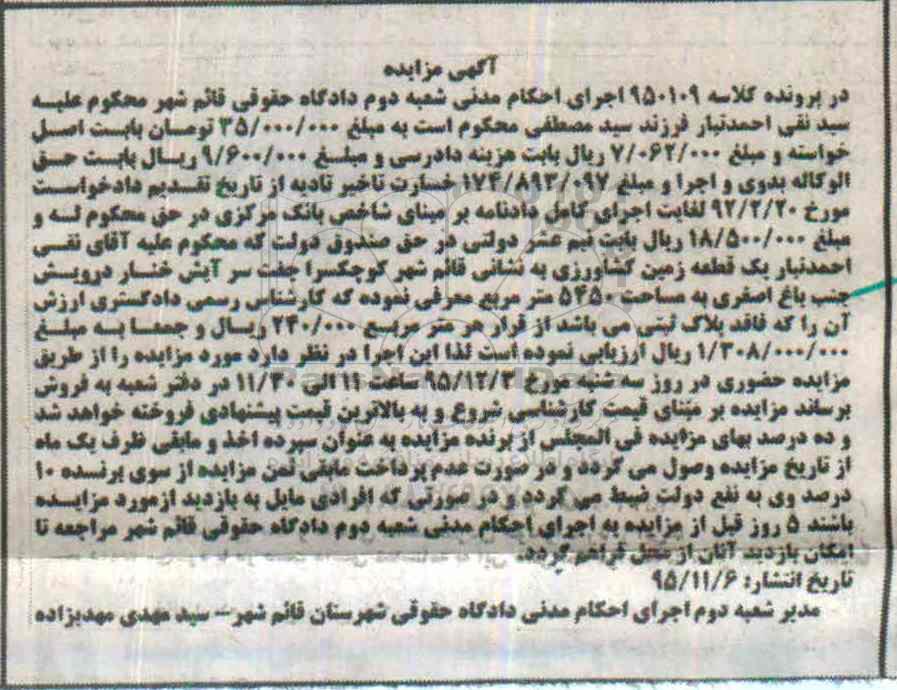 آگهی مزایده
در پرونده کلاسه ۹۵۰۱۰۹ اجرای احکام مدنی شعبه دوم دادگاه حقوقی قائم شهر محکوم علیه
سید نقی احمدتبار فرزند سید مصطفی محکوم است به مبلغ ۳۵/۰۰۰/۰۰۰ تومان بابت اصل
خواسته و مبلغ ۷/۰۶۲/۰۰۰ ریال بابت هزینه دادرسی و مبلغ ۹/۶۰۰/۰۰۰ ریال بابت حق
الوکاله بدوی و اجرا و مبلغ ۱۷۴/۸۹۳/۰۹۷ خسارت تاخیر تادیه از تاریخ تقدیم دادخواست
مورخ ۹۲/۲/۲۰ لغایت اجرای کامل دادنامه بر مبنای شاخص بانک مرکزی در حق محکوم له و
مبلغ ۱۸/۵۰۰/۰۰۰ ریال بابت نیم عشر دولتی در حق صندوق دولت که محکوم علیه آقای نقی
احمدتبار یک قطعه زمین کشاورزی به نشانی قائم شهر کوچکسرا جفت سر آیش ختار درویش
جنب باغ اصغری به مساحت ۵۴۵۰ متر مربع معرفی نموده که کارشناس رسمی دادگستری ارزش
آن را که فاقد پلاک ثبتی می باشد از قرار هر متر مربع ۲۴۰/۰۰۰ ریال و جمعا به مبلغ
۱/۳۰۸/۰۰۰/۰۰۰ ریال ارزیابی نموده است لذا این اجرا در نظر دارد مورد مزایده را از طریق
مزایده حضوری در روز سه شنبه مورخ ۹۵/۱۲/۳ ساعت ۱۱ الی ۱۱/۳۰ در دفتر شعبه به فروش
برساند مزایده بر مبنای قیمت کارشناسی شروع و به بالاترین قیمت پیشنهادی فروخته خواهد شد
و ده درصد بهای مزایده فی المجلس از برنده مزایده به عنوان سپرده اخذ و مابقی ظرف یک ماه
از تاریخ مزایده وصول می گردد و در صورت عدم پرداخت مابقی ثمن مزایده از سوی برنده ۱۰
درصد وی به نفع دولت ضبط می گردد و در صورتی که افرادی مایل به بازدید ازمورد مزایده
باشند ۵ روز قبل از مزایده به اجرای احکام مدنی شعبه دوم دادگاه حقوقی قائم شهر مراجعه تا
امکان بازدید آنان از محل فراهم گردد.
تاریخ انتشار: ۹۵/۱۱/۶
مدیر شعبه دوم اجرای احکام مدنی دادگاه حقوقی شهرستان قائم شهر – سید مهدی مهدیزاده